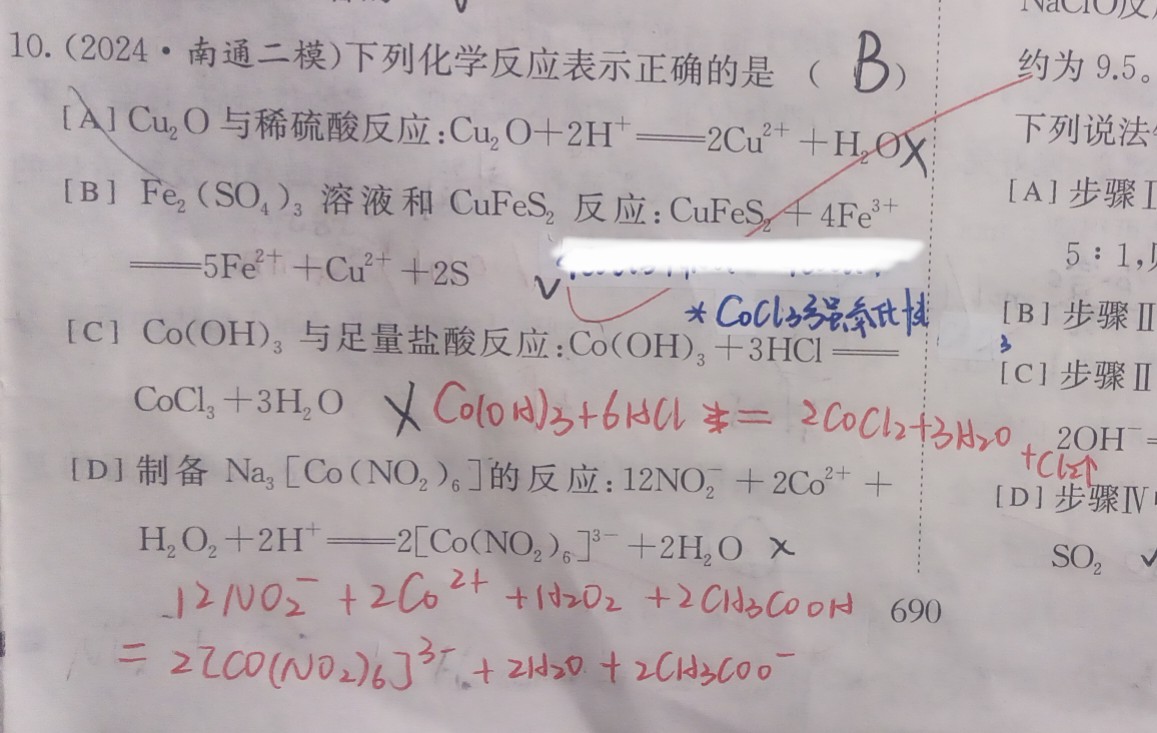 NaClO反
10. (2024·南通二模)下列化学反应表示正确的是 ( B )
[A] Cu₂O 与稀硫酸反应:Cu₂O+2H⁺══2Cu²⁺+H₂O ×
[B] Fe₂(SO₄)₃ 溶液和 CuFeS₂ 反应:CuFeS₂+4Fe³⁺
══5Fe²⁺+Cu²⁺+2S √
* CoCl₃强氧化性
[C] Co(OH)₃ 与足量盐酸反应:Co(OH)₃+3HCl══
CoCl₃+3H₂O × Co(OH)3+6HCl = 2CoCl₂+3H₂O
+Cl₂↑
[D]制备 Na₃[Co(NO₂)₆]的反应:12NO₂⁻+2Co²⁺+
H₂O₂+2H⁺══2[Co(NO₂)₆]³⁻+2H₂O ×
12NO₂⁻+2Co²⁺+H₂O₂+2CH₃COOH
=2[CO(NO₂)6]³⁻+2H₂O+2CH₃COO⁻
690
约为 9.5。
下列说法
[A]步骤Ⅰ
5∶1,
[B]步骤Ⅱ
3
[C]步骤Ⅱ
2OH⁻=
[D]步骤Ⅳ
SO₂ √